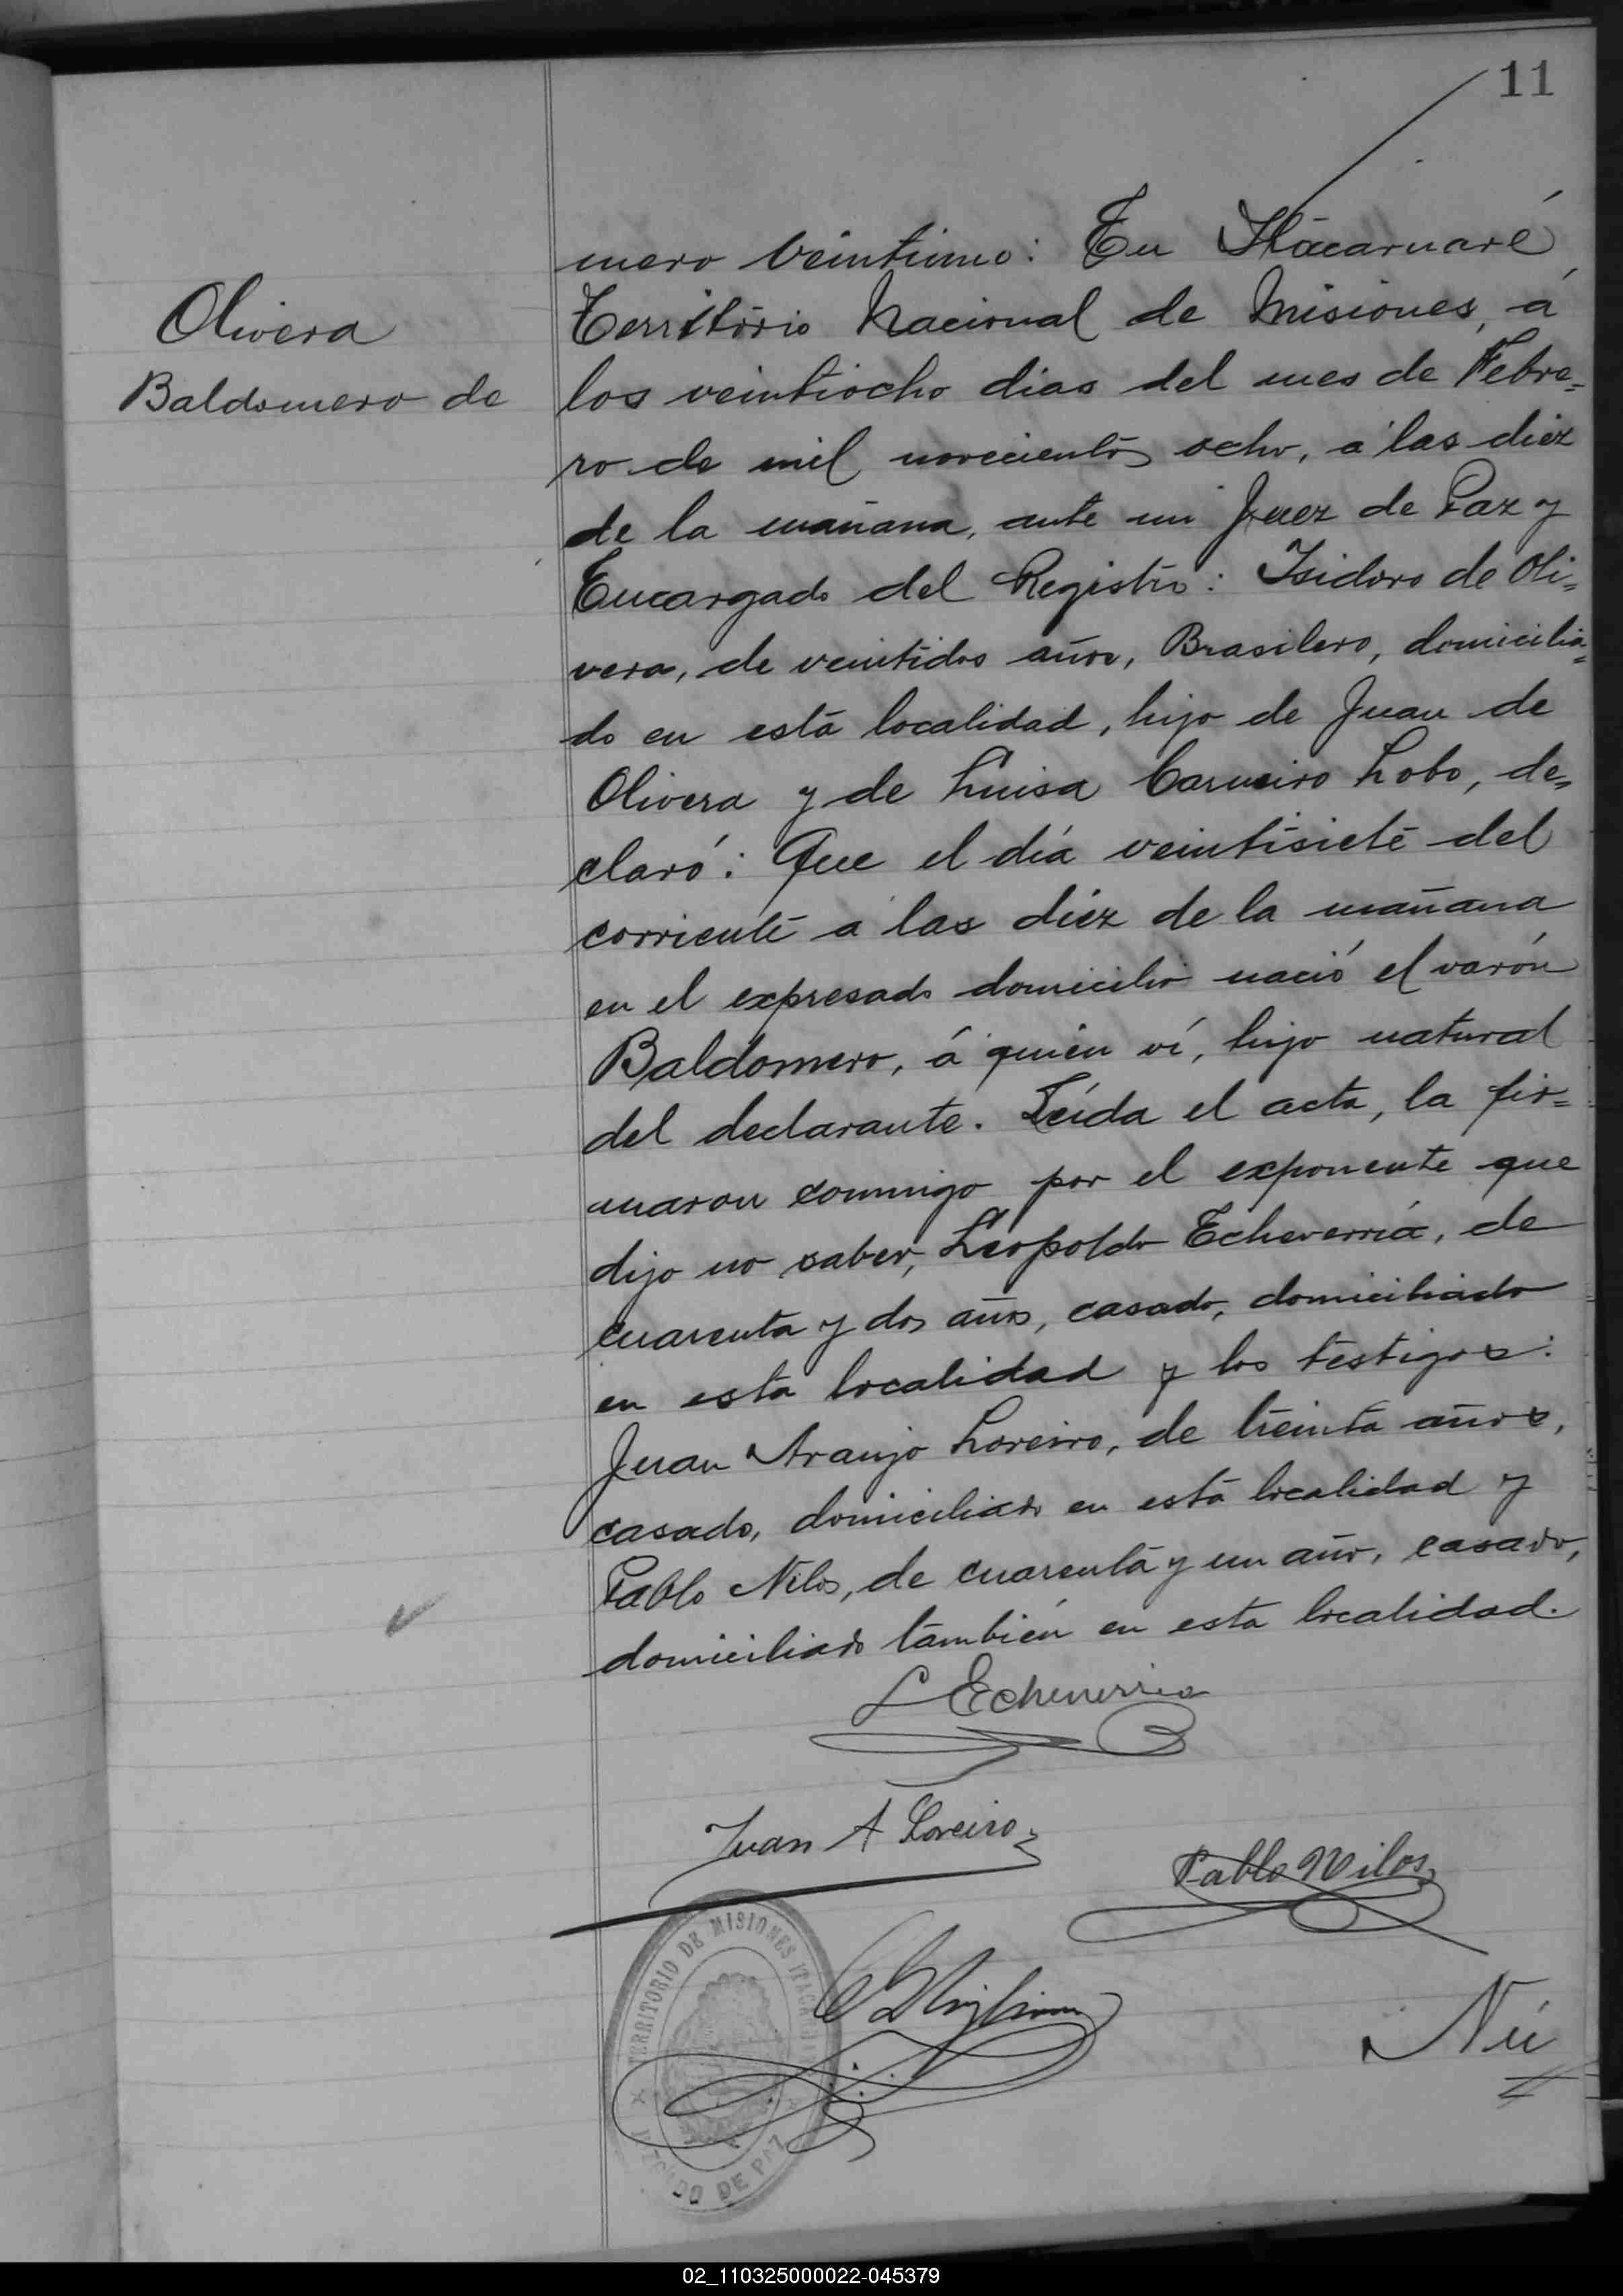 11
Olivera
Baldomero de
mero veintiuno: En Itacaruaré
Territorio Nacional de Misiones, á
los veintiocho dias del mes de Febre=
ro de mil novecientos ocho, a las diez
de la mañana, ante mi Juez de Paz y
Encargado del Registro: Isidoro de Oli=
vera, de veintidos años, Brasilero, domicilia=
do en esta localidad, hijo de Juan de
Olivera y de Luisa Carneiro Lobo, de=
claró: Que el día veintisiete del
corriente a las diez de la mañana
en el expresado domicilio nació el varón
Baldomero, á quien ví, hijo natural
del declarante. Leída el acta, la fir=
maron conmigo por el exponente que
dijo no saber, Leopoldo Echeverría, de
cuarenta y dos años, casado, domiciliado
en esta localidad y los testigos:
Juan Araujo Loreiro, de treinta años,
casado, domiciliado en esta localidad y
Pablo Nilos, de cuarenta y un año, casado,
domiciliado también en esta localidad.
L Echeverria
Juan A Loreiro
Pablo Nilos
TERRITORIO DE MISIONES
JUZGADO DE PAZ
Nú
02_110325000022-045379